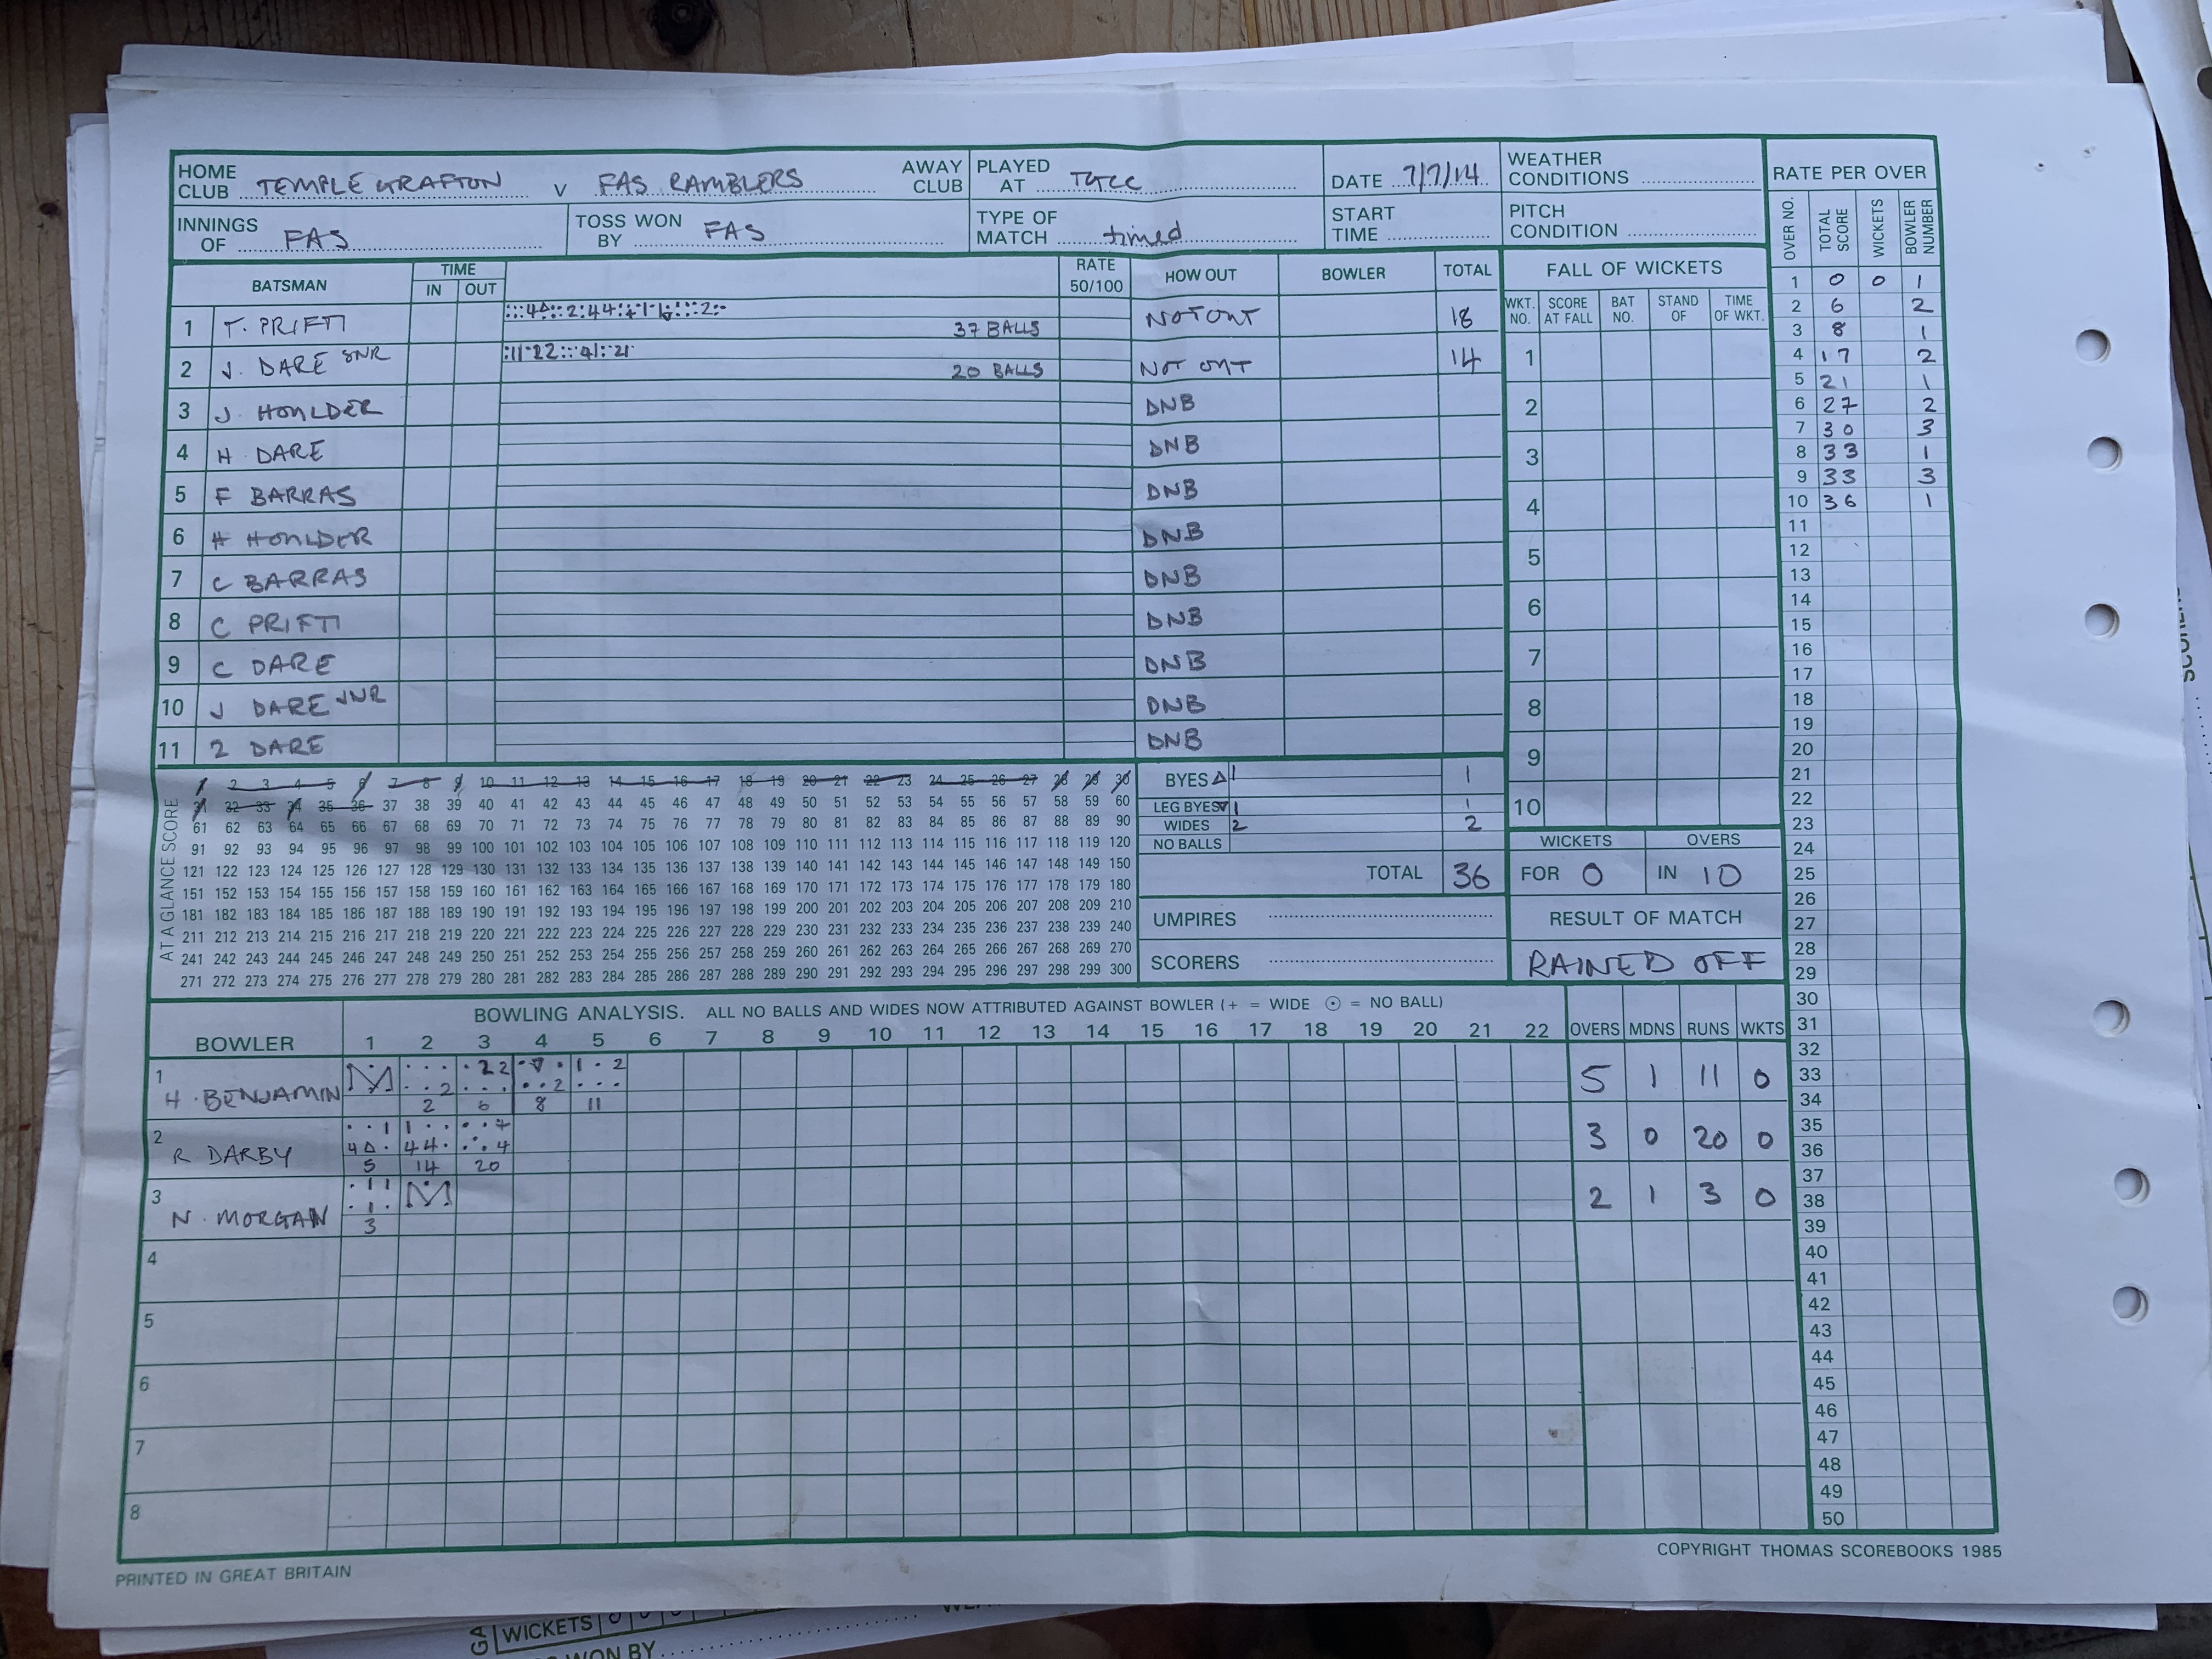 HOME CLUB TEMPLE GRAFTON V FAS RAMBLERS AWAY CLUB
PLAYED AT TGCC
DATE 7/7/14
WEATHER CONDITIONS
INNINGS OF FAS
TOSS WON BY FAS
TYPE OF MATCH timed
START TIME
PITCH CONDITION
RATE PER OVER
OVER NO. TOTAL SCORE WICKETS BOWLER NUMBER
1 0 0 1
2 6 2
3 8 1
4 17 2
5 21 1
6 27 2
7 30 3
8 33 1
9 33 3
10 36 1
11
12
13
14
15
16
17
18
19
20
21
22
23
24
25
26
27
28
29
30
31
32
33
34
35
36
37
38
39
40
41
42
43
44
45
46
47
48
49
50
BATSMAN TIME IN OUT RATE 50/100 HOW OUT BOWLER TOTAL
1 T. PRIFTI 37 BALLS NOT OUT 18
2 J. DARE SNR 20 BALLS NOT OUT 14
3 J. HOULDER DNB
4 H DARE DNB
5 F BARRAS DNB
6 H HOULDER DNB
7 C BARRAS DNB
8 C PRIFTI DNB
9 C DARE DNB
10 J DARE JNR DNB
11 2 DARE DNB
FALL OF WICKETS
WKT. NO. SCORE AT FALL BAT NO. STAND OF TIME OF WKT.
1
2
3
4
5
6
7
8
9
10
AT A GLANCE SCORE
1 2 3 4 5 6 7 8 9 10 11 12 13 14 15 16 17 18 19 20 21 22 23 24 25 26 27 28 29 30
31 32 33 34 35 36 37 38 39 40 41 42 43 44 45 46 47 48 49 50 51 52 53 54 55 56 57 58 59 60
61 62 63 64 65 66 67 68 69 70 71 72 73 74 75 76 77 78 79 80 81 82 83 84 85 86 87 88 89 90
91 92 93 94 95 96 97 98 99 100 101 102 103 104 105 106 107 108 109 110 111 112 113 114 115 116 117 118 119 120
121 122 123 124 125 126 127 128 129 130 131 132 133 134 135 136 137 138 139 140 141 142 143 144 145 146 147 148 149 150
151 152 153 154 155 156 157 158 159 160 161 162 163 164 165 166 167 168 169 170 171 172 173 174 175 176 177 178 179 180
181 182 183 184 185 186 187 188 189 190 191 192 193 194 195 196 197 198 199 200 201 202 203 204 205 206 207 208 209 210
211 212 213 214 215 216 217 218 219 220 221 222 223 224 225 226 227 228 229 230 231 232 233 234 235 236 237 238 239 240
241 242 243 244 245 246 247 248 249 250 251 252 253 254 255 256 257 258 259 260 261 262 263 264 265 266 267 268 269 270
271 272 273 274 275 276 277 278 279 280 281 282 283 284 285 286 287 288 289 290 291 292 293 294 295 296 297 298 299 300
BYES △ 1 1
LEG BYES ▽ 1 1
WIDES 2 2
NO BALLS
TOTAL 36
WICKETS OVERS
FOR 0 IN 10
UMPIRES
SCORERS
RESULT OF MATCH
RAINED OFF
BOWLING ANALYSIS. ALL NO BALLS AND WIDES NOW ATTRIBUTED AGAINST BOWLER (+ = WIDE ⊙ = NO BALL)
BOWLER 1 2 3 4 5 6 7 8 9 10 11 12 13 14 15 16 17 18 19 20 21 22 OVERS MDNS RUNS WKTS
1 H. BENJAMIN M 2 6 8 11 5 1 11 0
2 R DARBY 5 14 20 3 0 20 0
3 N. MORGAN 3 M 2 1 3 0
4
5
6
7
8
PRINTED IN GREAT BRITAIN
COPYRIGHT THOMAS SCOREBOOKS 1985
WICKETS
WON BY